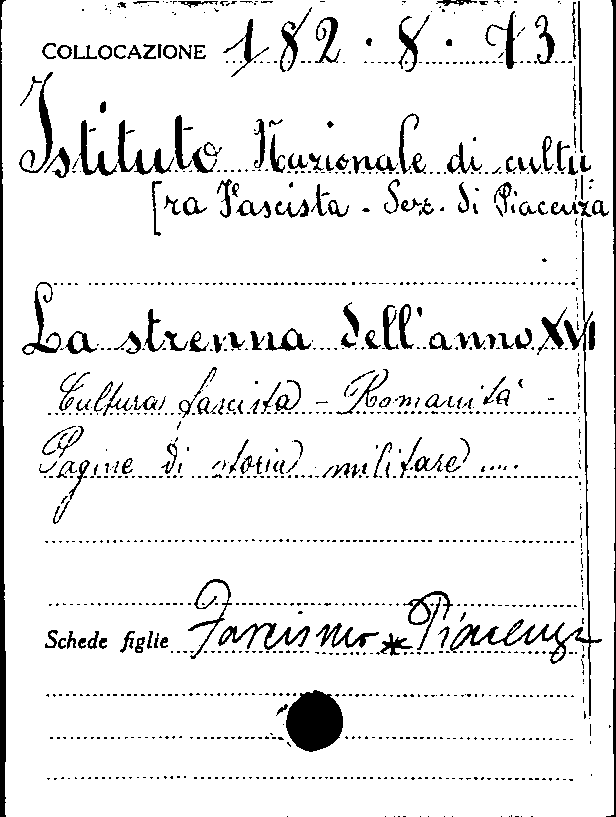 COLLOCAZIONE 182.8.73
Istituto Nazionale di cultu
[ra Fascista - Sez. di Piacenza
La strenna dell'anno XVI
Cultura fascista - Romanità -
Pagine di storia militare ....
Schede figlie Fascismo * Piacenza